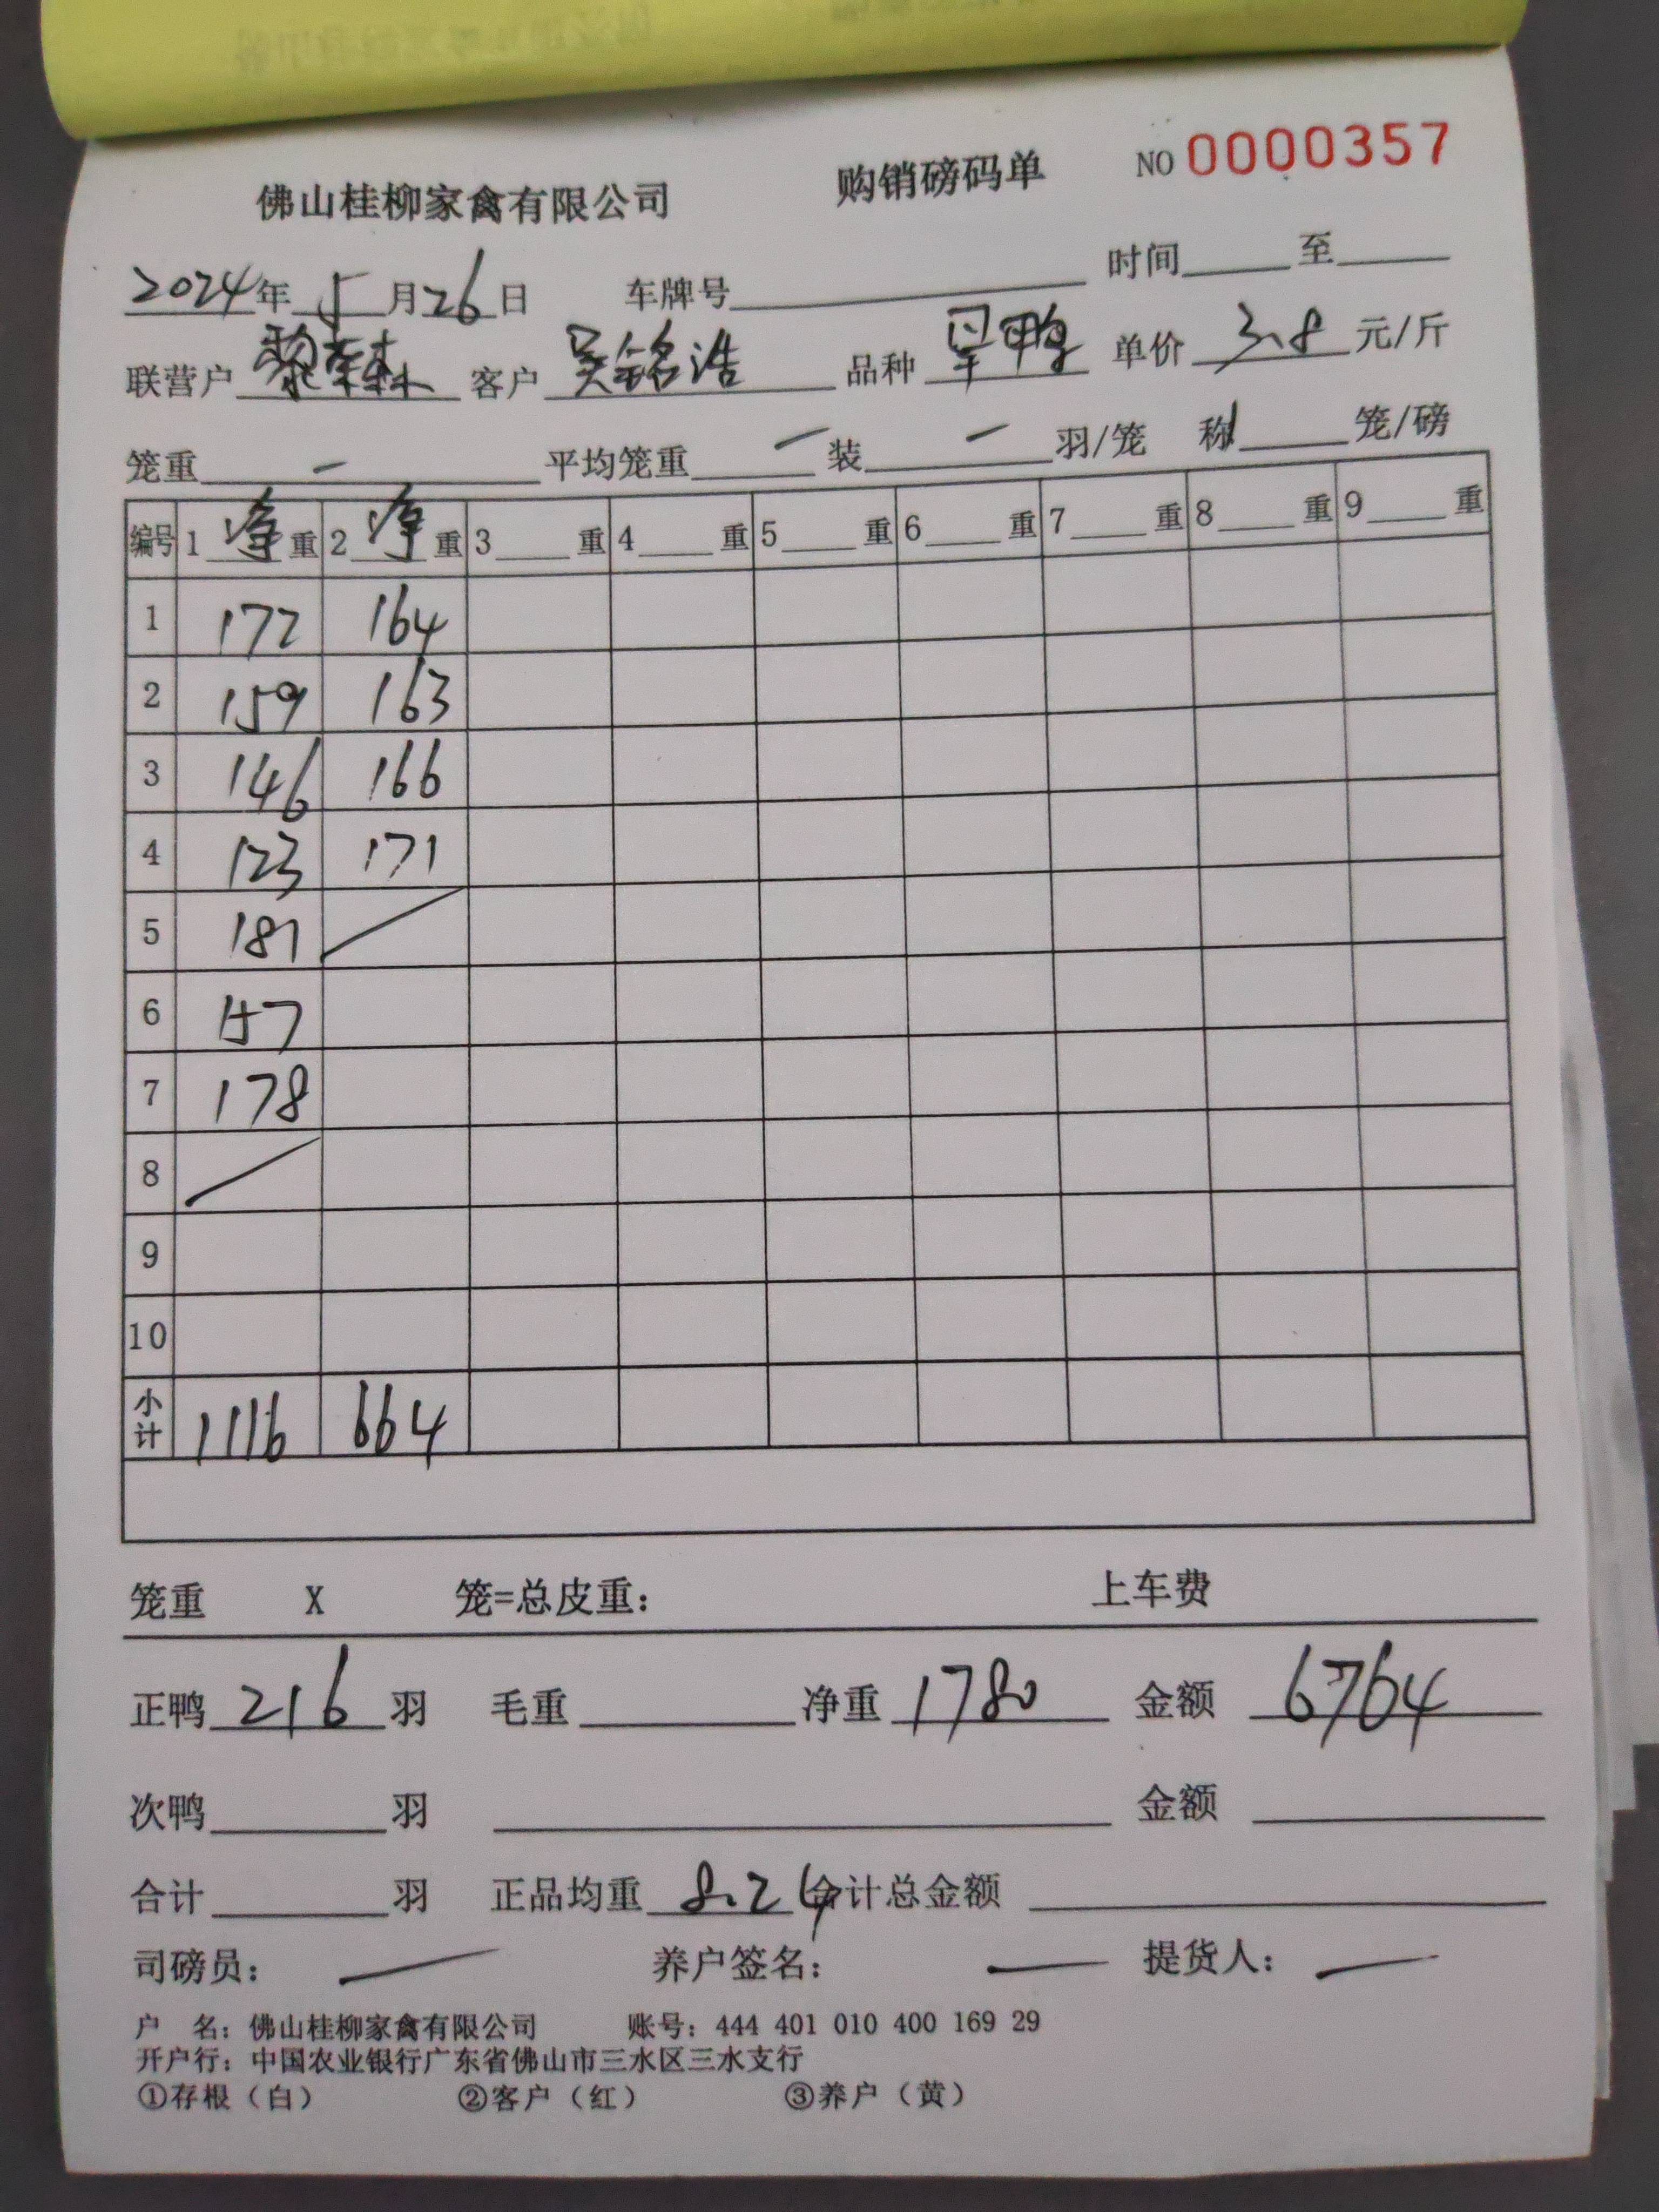 佛山桂柳家禽有限公司 购销磅码单 NO 0000357
2024年 5 月 26 日 车牌号 时间 至
联营户 黎 森 客户 吴铭浩 品种 旱鸭 单价 3.8 元/斤
笼重 — 平均笼重 — 装 — 羽/笼 称 1 笼/磅
编号 1 净 重 2 净 重 3 重 4 重 5 重 6 重 7 重 8 重 9 重
1 172 164
2 159 163
3 146 166
4 123 171
5 181
6 157
7 178
8
9
10
小计 1116 664
笼重 X 笼=总皮重: 上车费
正鸭 216 羽 毛重 净重 1780 金额 6764
次鸭 羽 金额
合计 羽 正品均重 8.24 合计总金额
司磅员: — 养户签名: — 提货人: —
户 名: 佛山桂柳家禽有限公司 账号: 444 401 010 400 169 29
开户行: 中国农业银行广东省佛山市三水区三水支行
①存根(白) ②客户(红) ③养户(黄)